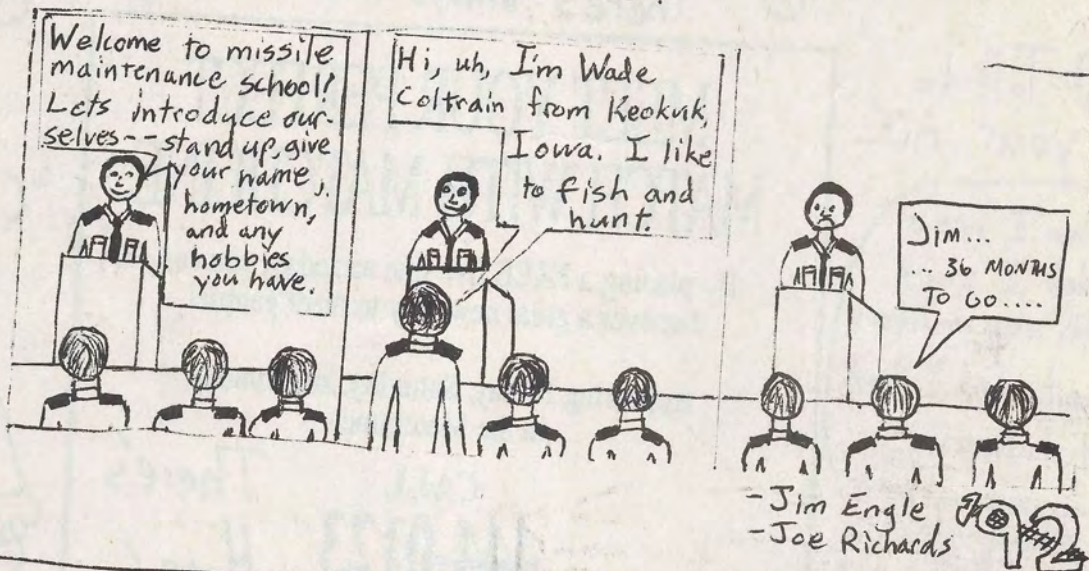 Welcome to missile
maintenance school!
Lets introduce our-
selves -- stand up, give
your name,
hometown,
and any
hobbies
you have.
Hi, uh, I'm Wade
Coltrain from Keokuk,
Iowa. I like
to fish and
hunt.
Jim...
... 36 MONTHS
TO GO....
- Jim Engle
- Joe Richards